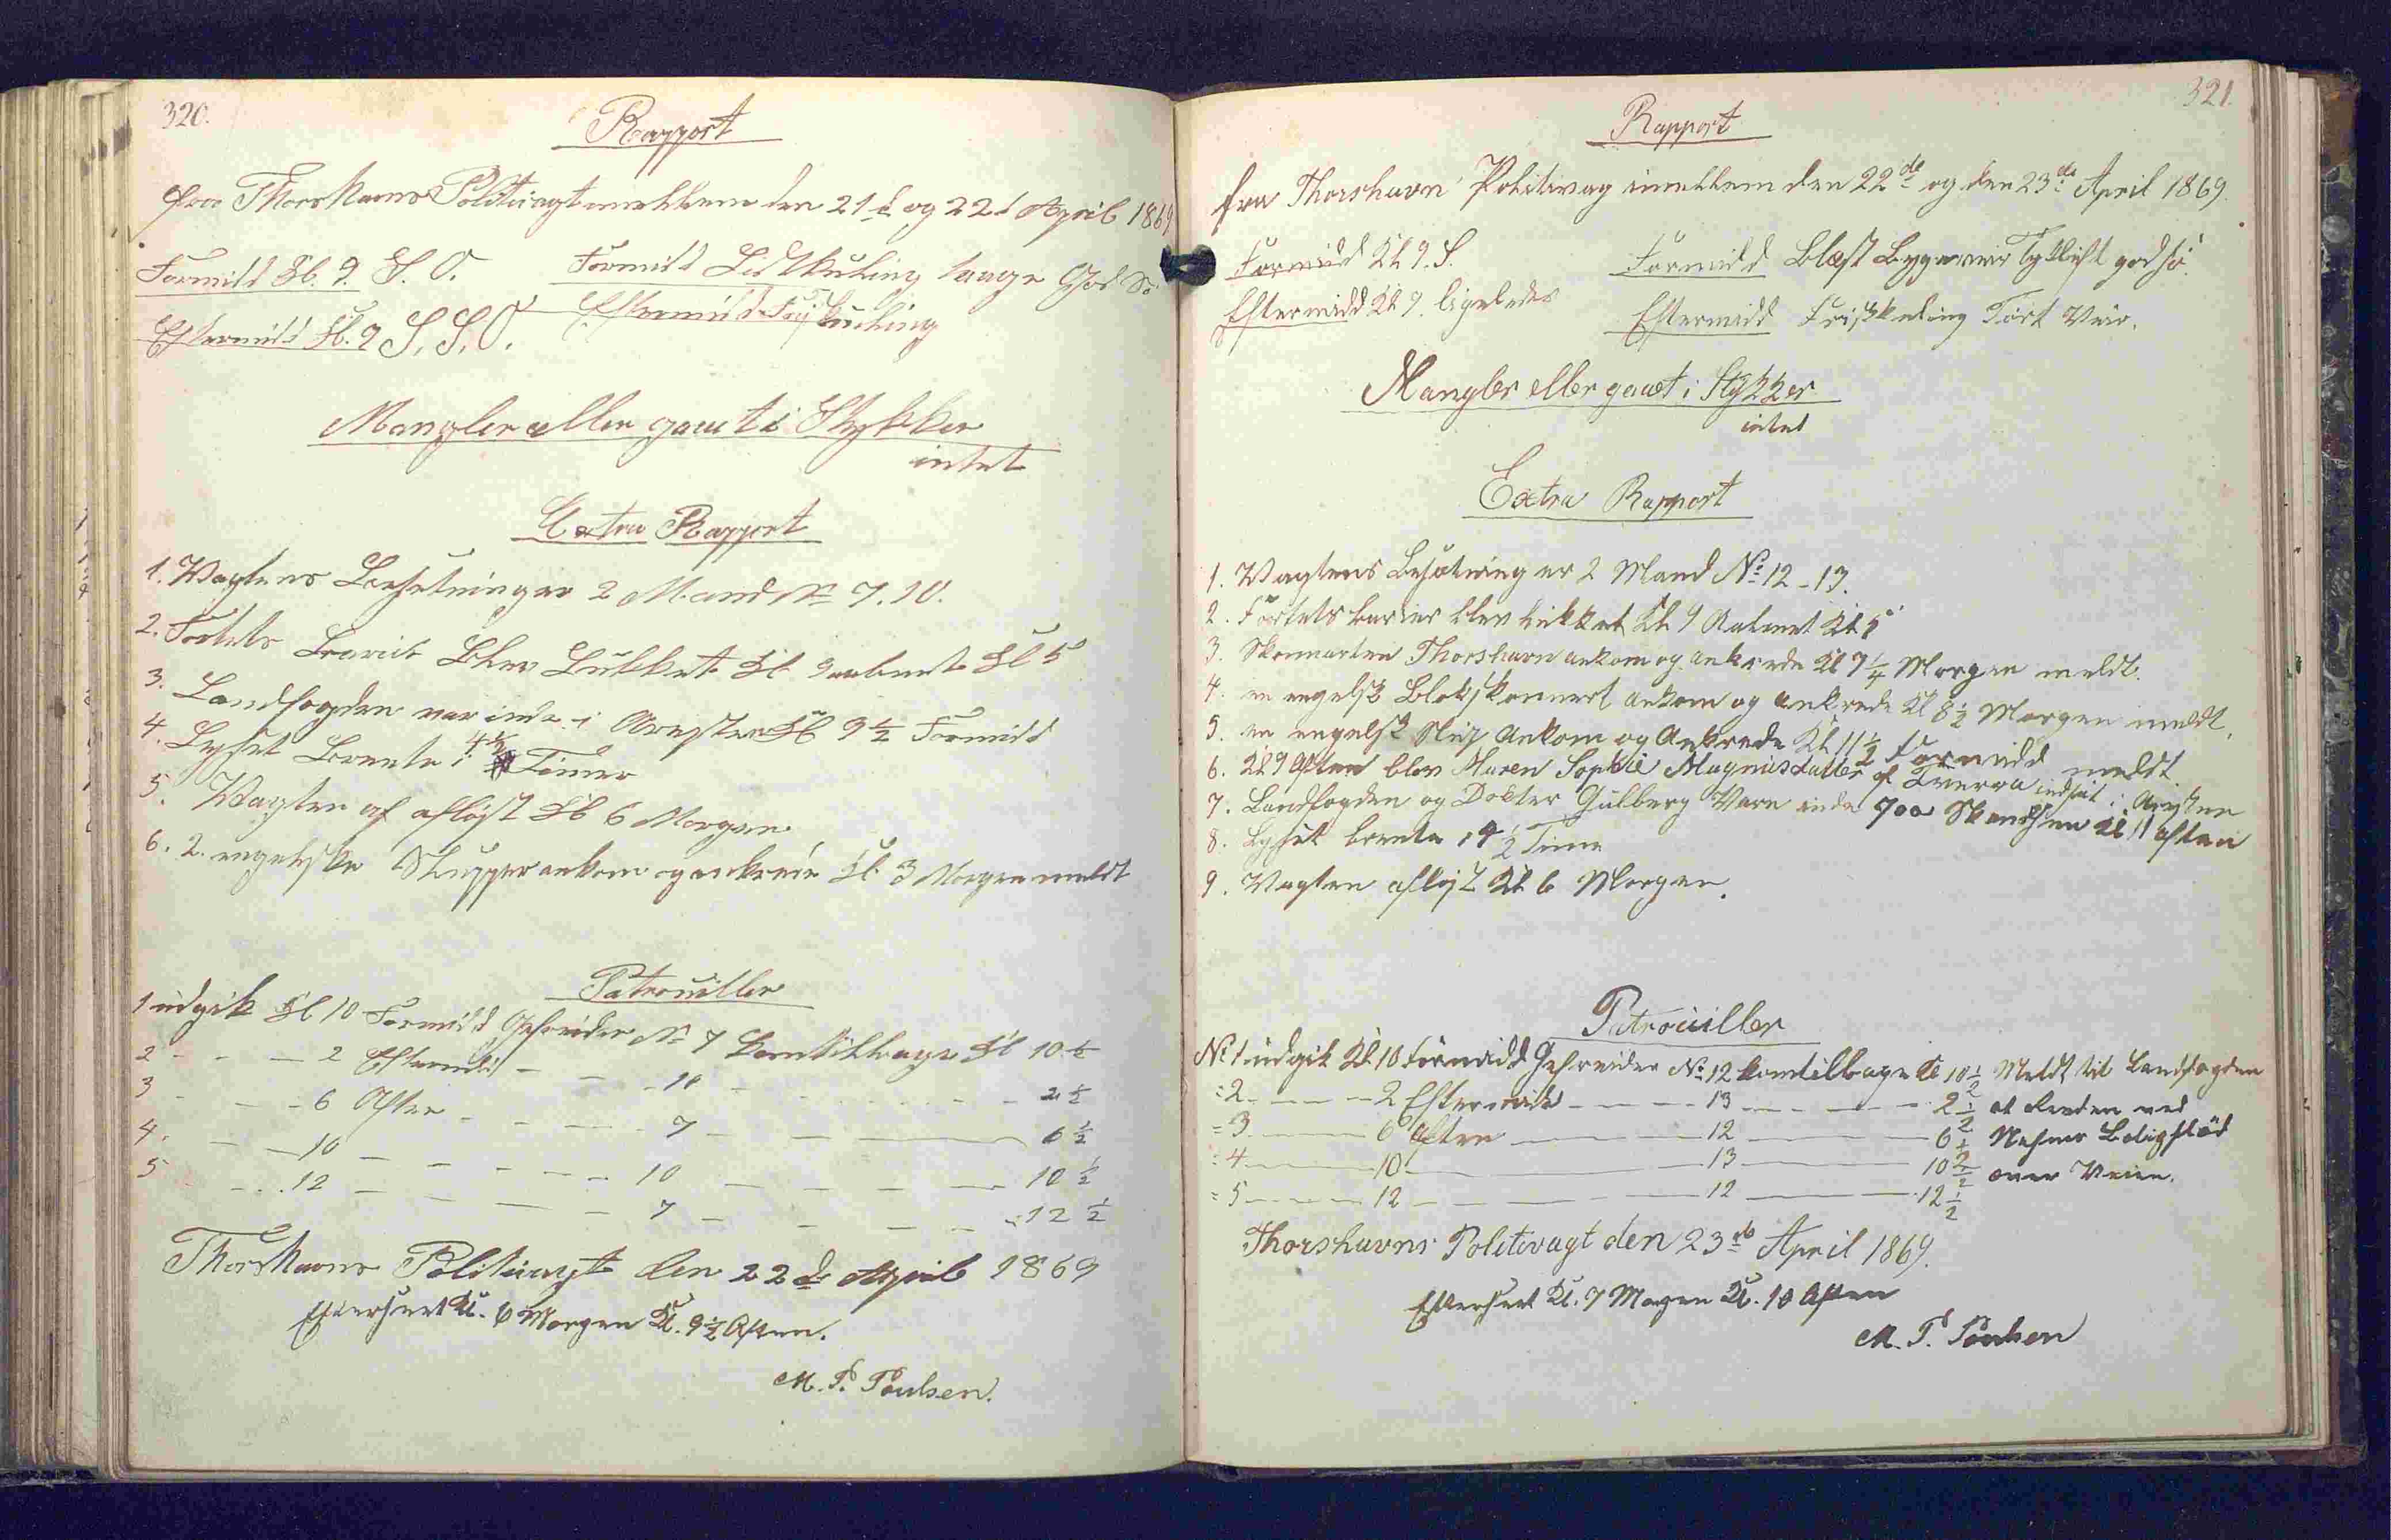 320.
Rapport
fra Thorshavns Politivagt imellem den 21de og 22d April 1869
Formidd Kl. 9. S. O. Formidd Lidt Kuling taage God Sø.
Eftermidd Kl. 9 S. S. O. Eftermidd Frisk Kuling
Mangler eller gaaet i Stykker
intet
Extra Rapport
1. Vagtens Besetning er 2 Mand No 7. 10.
2. Fortets Barier Blev Lukket Kl 9 aabnet Kl 5
3. Landfogden var inde i Aresten Kl 9 1/2 Formidd
4. Lyset Brente i 4 1/2 Timer
5. Vagten af afløst Kl 6 Morgen
6. 2. engelske Slupper ankom og ankrede Kl. 3 Morgen meldt
Patrouiller
1 udgik Kl 10 Formidd Gefreider No 7 kom tilbage Kl 10 1/2
2 - - - 2 Eftermidd - - - 10 - - - - 2 1/2
3 - - - 6 Aften - - - - 7 - - - 6 1/2
4. - - 10 - - - - - 10 - - - - 10 1/2
5 - - - 12 - - - - - 7 - - - - 12 1/2
Thorshavns Politivagt den 22de April 1869
Efterseet Kl. 6 Morgen Kl. 9 1/2 Aften.
M. P. Poulsen.
321.
Rapport
fra Thorshavn Politivag imellem den 22de og den 23de April 1869.
Formidd Kl 9. S. Formidd Blæst Bygeveir Tyk Luft god sø.
Eftermidd Kl 9. ligeledes Eftermidd Frisk kuling Tørt Veir.
Mangler eller gaaet i Stykker
intet
Extra Rapport
1. Vagtens Besætning er 2 Mand No 12 - 13.
2. Fortets barier blev lukket Kl 9 Aabnet Kl 5
3. Skonnarten Thorshavn ankom og ankrede Kl 7 1/4 Morgen meldt.
4. en engelsk Blokskonnert ankom og ankrede Kl 8 1/2 Morgen meldt.
5. en engelsk Slup Ankom og Ankrede Kl 11 1/2 Formidd meldt
6. Kl 9 Aften blev Maren Sophie Magnusdatter af Tveraa indsat i Aresten
7. Landfogden og Dokter Gulberg Vare inde paa Skandsen Kl 11 Aften
8. Lyset brente i 4 1/2 Time
9. Vagten afløst Kl 6 Morgen.
Patrouiller
No 1 udgik Kl 10 Formidd Gefreider No 12 kom tilbage Kl 10 1/2 Meldt til Landfogden
= 2 - - - - 2 Eftermidd - - - - 13 - - - - 2 1/2 at Renden ved
= 3 - - - - 6 Aften - - - 12 - - - 6 1/2 Bolighed
= 4 - - - - 10 - - - 13 - - - 10 1/2 over Veien.
= 5 - - - - 12 - - - - 12 - - - 12 1/2
Thorshavns Politivagt den 23de April 1869.
Efterseet Kl. 7 Morgen Kl. 10 Aften
M. P. Poulsen